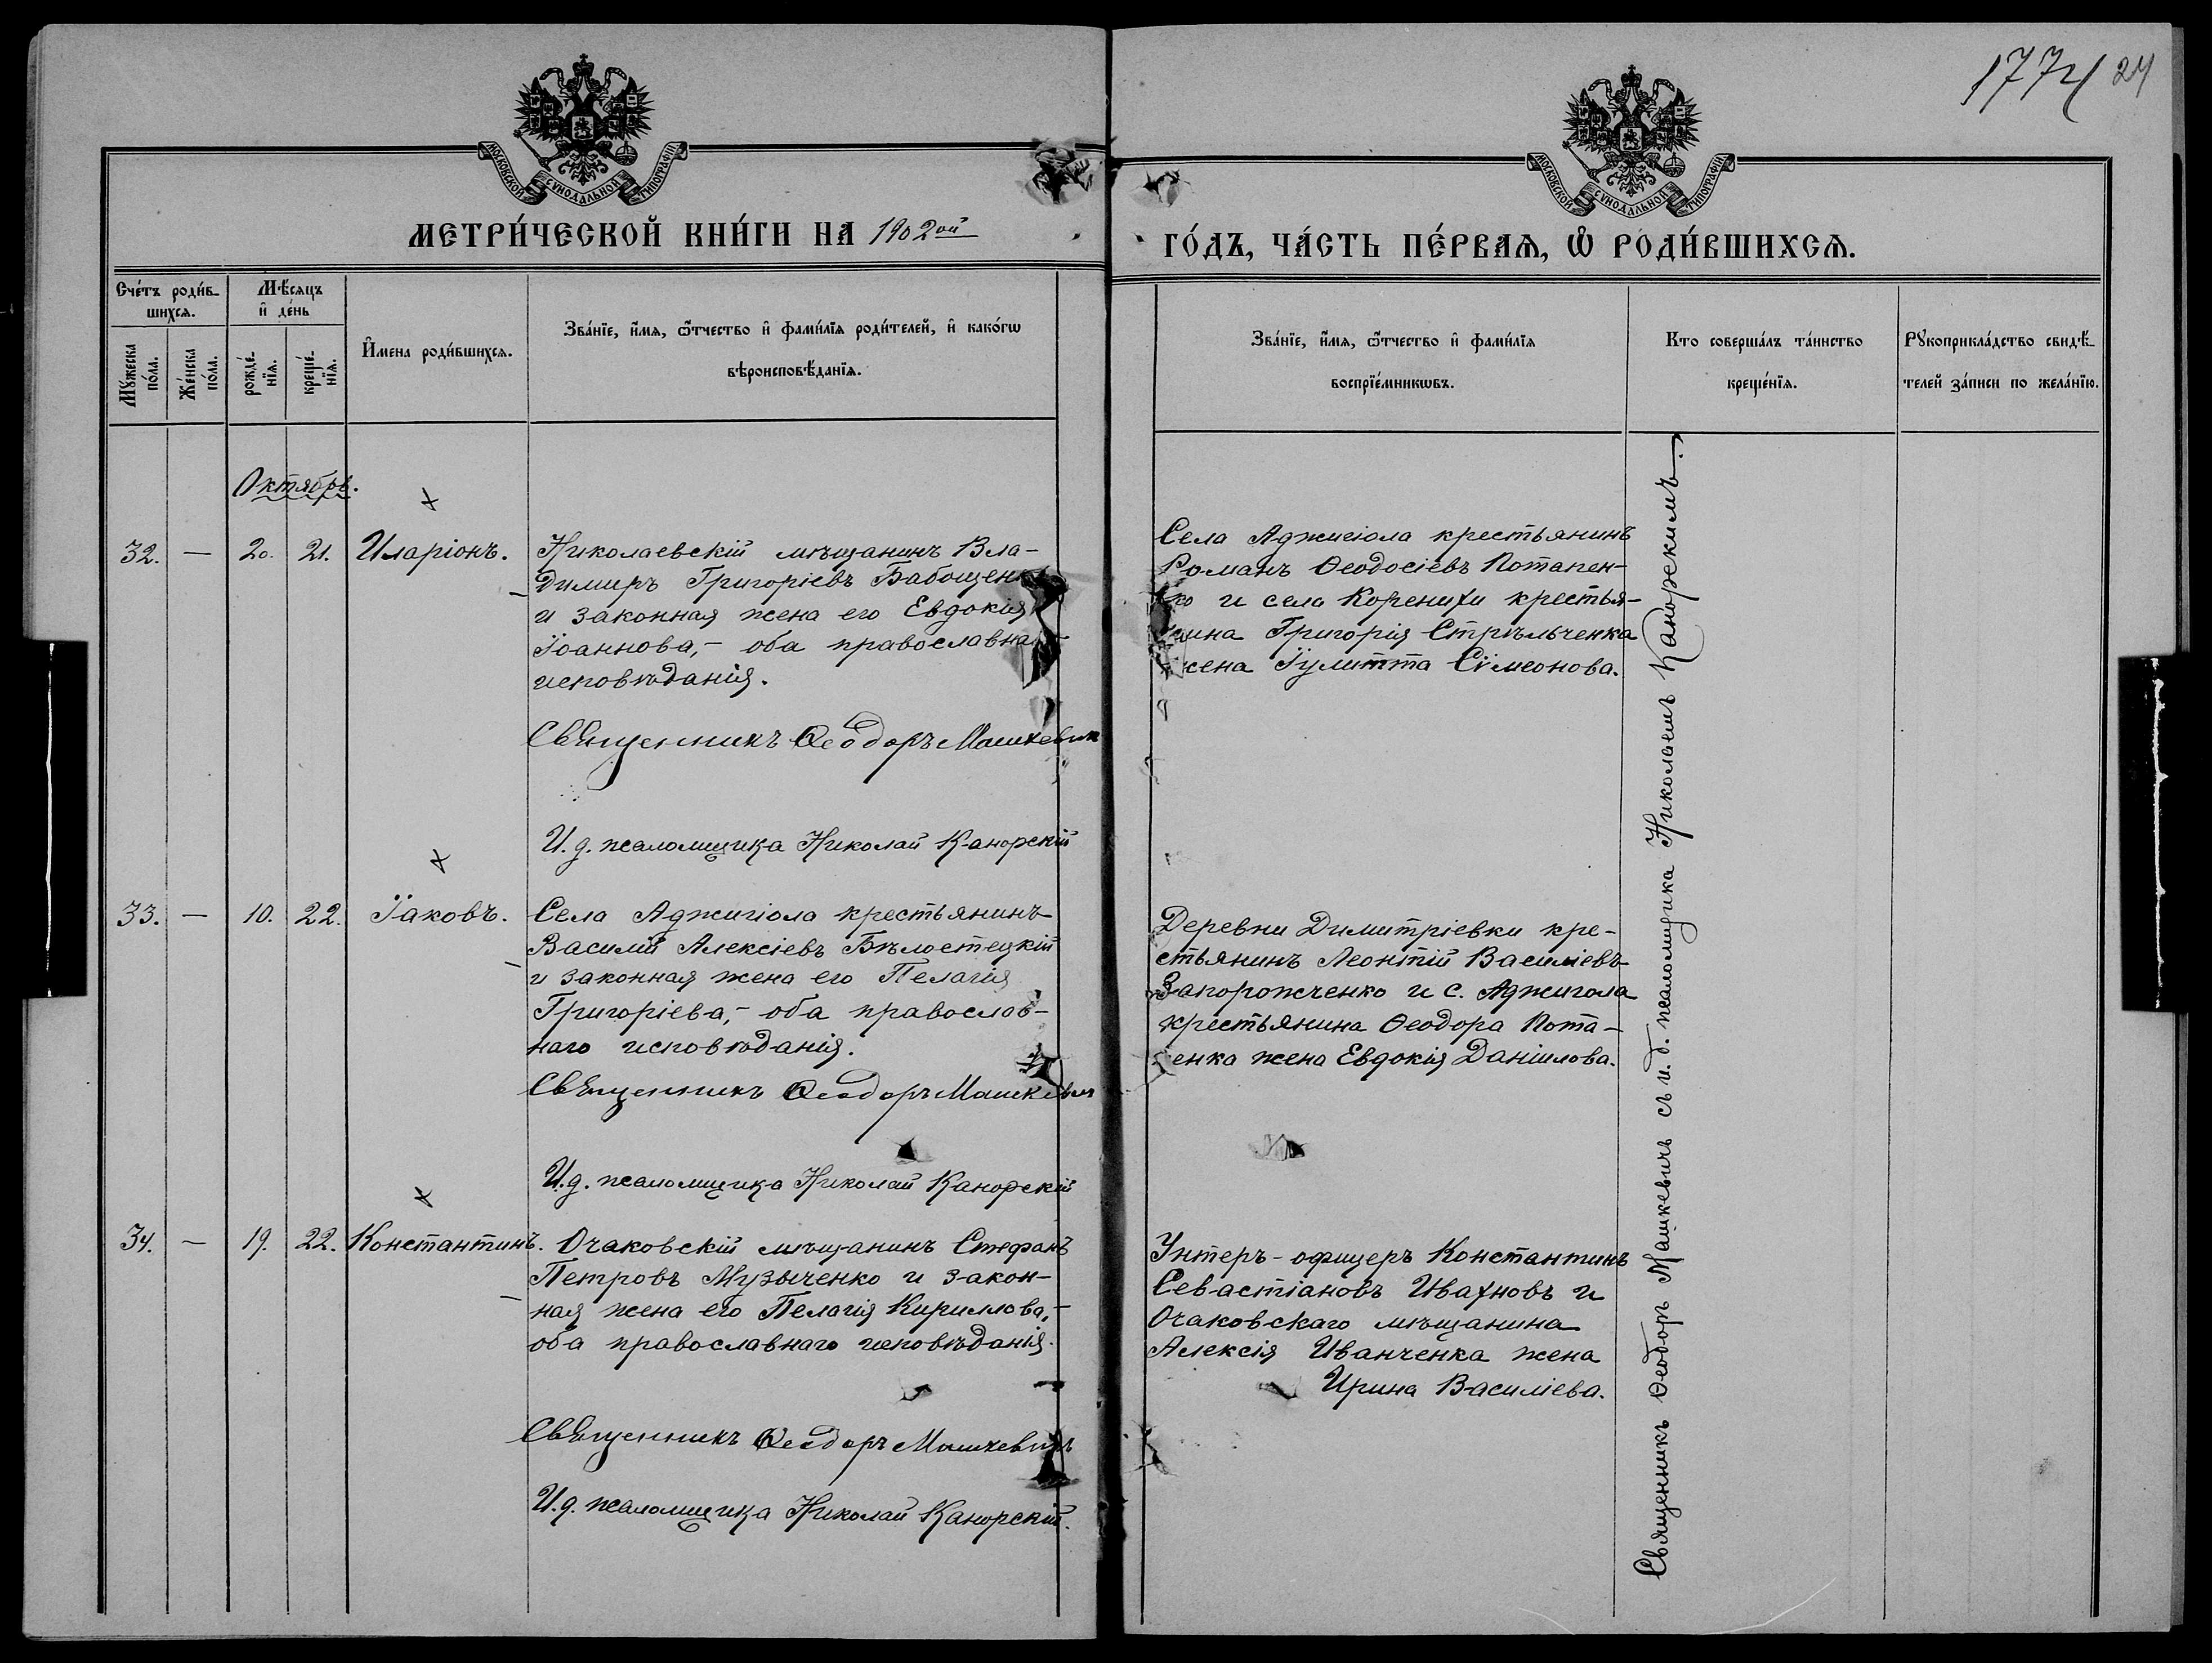 1774 24
МОСКОВСКОЙ СУНОДАЛЬНОЙ ТИПОГРАФІИ
МОСКОВСКОЙ СУНОДАЛЬНОЙ ТИПОГРАФІИ
МЕТРИ́ЧЕСКОЙ КНИ́ГИ НА 1902ой
ГО́ДЪ, ЧА́СТЬ ПЕ́РВАѦ, Ѽ РОДИ́ВШИХСѦ.
Сче́тъ роди́в-
шихсѧ.
Мꙋ́жеска по́ла.
Же́нска по́ла.
Мѣ́сѧцъ
и҆ де́нь
рожде́-
нїѧ.
креще́-
нїѧ.
И҆мена роди́вшихсѧ.
Зва́нїе, и҆́мѧ, ѻ҆́тчество и҆ фами́лїѧ роди́телей, и҆ како́гѡ
вѣроисповѣ́данїѧ.
Зва́нїе, и҆́мѧ, ѻ҆́тчество и҆ фами́лїѧ
воспрїе́мникѡвъ.
Кто соверша́лъ та́инство
креще́нїѧ.
Рꙋкоприкла́дство свидѣ́-
телей за́писи по жела́нїю.
Октябрь.
32. — 20. 21. Иларіонъ.
Николаевскій мѣщанинъ Вла-
димиръ Григоріевъ Бабощен
и законная жена его Евдокія
Іоаннова, - оба православна
исповѣданія.
Священникъ Ѳеодоръ Машкевич
И. д. псаломщика Николай Канорскій
Села Аджигіола крестьянинъ
Романъ Ѳеодосіевъ Потапен-
ко и села Коренихи крестья-
нина Григорія Стрѣльченка
жена Іулитта Сімеонова.
33. — 10. 22. Іаковъ.
Села Аджигіола крестьянинъ
Василій Алексіевъ Бѣлостецкій
и законная жена его Пелагія
Григоріева, - оба православ-
наго исповѣданія.
Священникъ Ѳеодоръ Машкевич
И. д. псаломщика Николай Канорскій
Деревни Димитріевки кре-
стьянинъ Леонтій Василіевъ
Запорожченко и с. Аджигола
крестьянина Ѳеодора Пота-
енка жена Евдокія Даніилова.
34. — 19. 22. Константинъ.
Очаковскій мѣщанинъ Стефанъ
Петровъ Музыченко и закон-
ная жена его Пелагія Кириллова, -
оба православнаго исповѣданія.
Священникъ Ѳеодоръ Машкевичъ
И. д. псаломщика Николай Канорскій.
Унтеръ-офицеръ Константинъ
Севастіановъ Ивахновъ и
Очаковскаго мѣщанина
Алексія Иванченка жена
Ирина Василіева.
Священникъ Ѳеодоръ Машкевичъ съ и. д. псаломщика Николаемъ Канорскимъ.